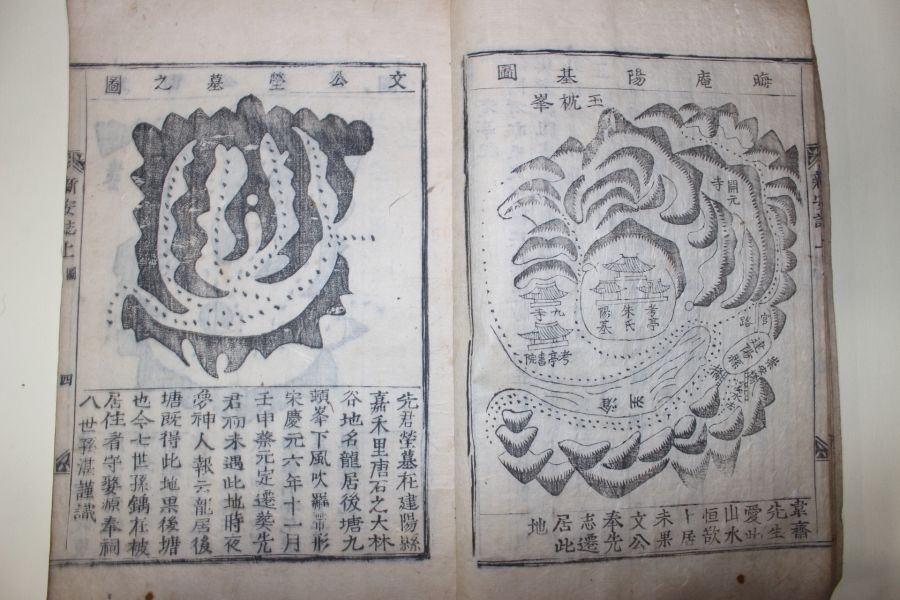 晦庵陽基圖
玉枕峯
開元寺
考亭
朱氏
陽基
考亭書院
官路
建陽縣
韋齋
先生
愛此
山水
恒欲
卜居
未果
文公
奉先
志遷
居此
地
文公塋墓之圖
先君塋墓在建陽縣
嘉禾里唐石之大林
谷地名龍居後塘九
頭峯下風吹羅帶形
宋慶元六年十一月
壬申蔡元定遷葬先
君初未遇此地時夜
夢神人報云龍居後
塘既得此地果後塘
也今七世孫鏋在彼
居住者守婺源奉祠
八世孫湛謹識
新安誌上 圖 四